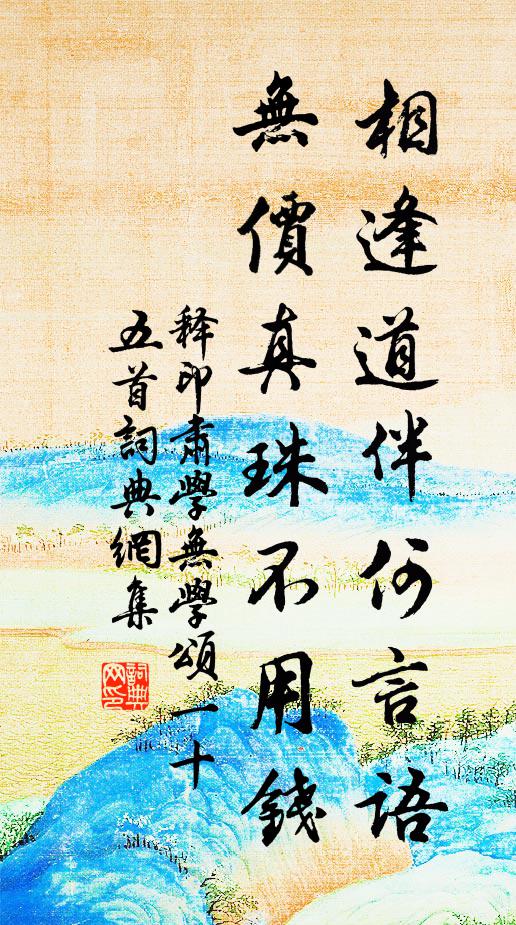 相逢道伴何言語
無價真珠不用錢
释印肅學無學頌一十
五首詞典網集
詞典网印